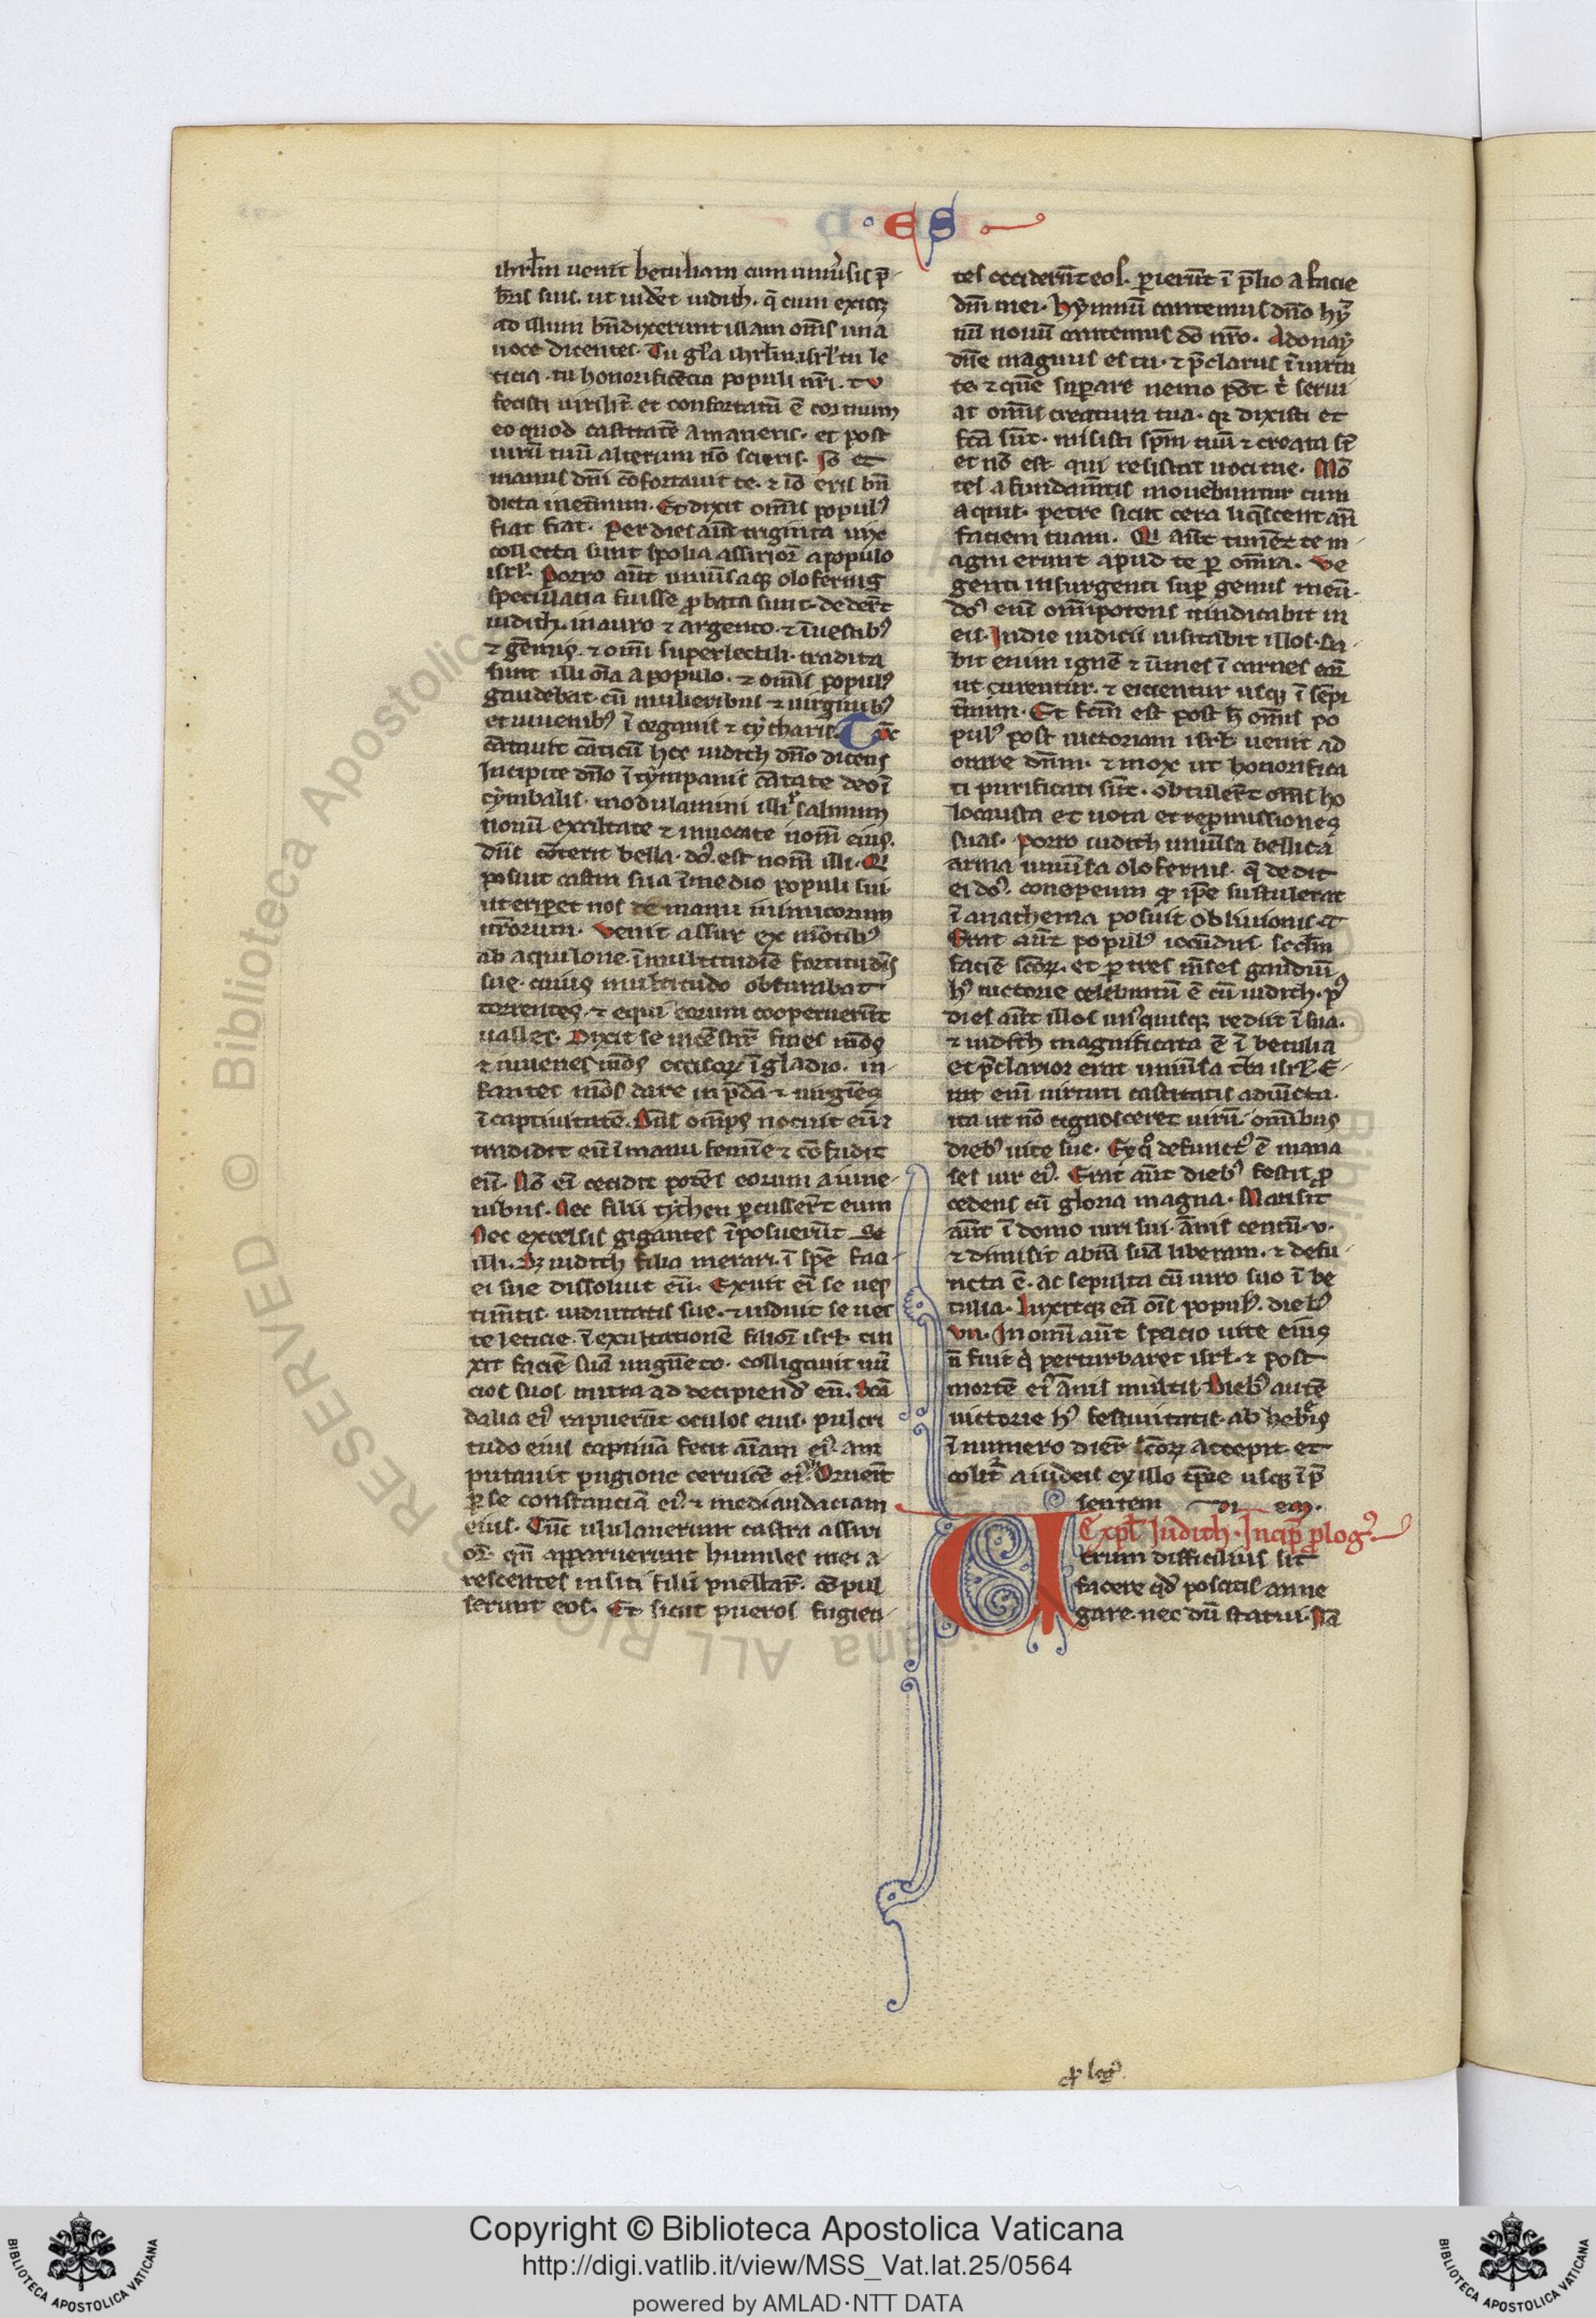 · ES ·
ihrl̄m uenit betuliam cum uniu̾sis p̄
b̄ris suis. ut uid̾et iudith. q̄ cum exiꝫ
ad illum bn̄dixerunt illam om̄s una
uoce dicentes. Tu gl̄a ihrl̄m. isrl̄ tu le
ticia. tu honorificēcia populi nr̄i. tu
fecisti uirilit̄. et confortatū ē cor tuum
eo quod castitatē amaueris. et post
uirū tuū alterum nō scieris. Iō et
manus dn̄i cōfortauit te. ⁊ iō eris bn̄
dicta inet̄num. Et dixit omīs populꝰ
fiat fiat. Per dies aūt triginta uix
collecta sunt spolia assirioꝝ apopulo
isrl̄. Porro aūt uniūsa que olofernis
speculatia fuisse ꝓbata sunt. dedert̄
iudith. in auro ⁊ argento. ⁊ ī uestibꝰ
⁊ gēmis. ⁊ omī superlectili. tradita
sunt illi oīa apopulo. ⁊ omīs populꝰ
gaudebat. cū mulieribus ⁊ uirginibꝰ
et iuuenibꝰ ī organis ⁊ cytharis. Tūc
cātauit cāticū hoc iudith dn̄o dicens
Incipite dn̄o ī tympanis cātate deo ī
cymbalis. modulamini illi psalmum
nouū. exultate ⁊ inuocate nom̄ eius.
dn̄s cōterit bella. dn̄s est nom̄ illi. Qi
posuit castra sua ī medio populi sui
ut erip̄et nos de manu inimicorum
nr̄orum. Venit assur ex mōtibꝰ
ab aquilone. ī multitudīe fortitudīs
sue. cuius multitudo obturabat
torrentes. ⁊ equi eorum cooperuerūt
ualles. Dixit se incēsur̄ fines meos
⁊ iuuenes meos occisoꝝ ī gladio. in-
fantes meos dare in p̄dā ⁊ uirgīes
ī captiuitatē. Dn̄s om̄ps nocuit eū ⁊
tradidit eū ī manu femīe ⁊ cōfudit
eū. Nō eī cecidit potēs eorum a iuue-
nibus. Nec filii tythen p̄cusser̄t eum
Nec excelsis gigantes īposuerūt se
illi. Sꝫ iudith filia merari. ī spē faci-
ei sue dissoluit eū. Exuit eī se ues
timētis uiduitatis sue. ⁊ induit se ues
te leticie. ī exultationē filioꝝ isrl̄. un
xit faciē suā unguēto. colligauit cin
cios suos mitra ad decipiend̄ eū. Scā
dalia eiꝰ rapuerūt oculos eius. pulcri
tudo eius captiuā fecit aīam eiꝰ. am
putauit pugione ceruicē eiꝰ. Orruer̄t
p̄se constanciā eiꝰ. ⁊ medi audaciam
eius. Tūc ululauerunt castra assiri
oꝝ. qn̄ apparuerunt humiles mei a
rescentes in siti. filii puellaꝝ. cōpul
serunt eos. Et sicut pueros fugien-
tes occiderūt eos. perierūt ī p̄lio a facie
dn̄i mei. hymnū cantemus dn̄o hy
nū nouū cantemus dō nr̄o. Adonay
dn̄e magnus es tu. ⁊ p̄clarus ī uirtu
te. ⁊ quē suparare nemo pōt. t̾ serui
at omīs creatura tua. qꝛ dixisti et
fc̄a sūt. misisti sp̄m tuū ⁊ creata st̄
et nō est qui resistat uoci tue. Mō
tes a fundamētis mouebuntur cum
aquis. petre sicut cera liq̄scent an̄
faciem tuam. Qi aūt timēt te m-
agni erunt apud te p̄ omīa. Ve
genti insurgenti sup̄ genus meū.
dn̄s eim̄ omīpotens uindicabit in
eis. In die iudicii uisitabit illos. da
bit enim ignē ⁊ u̾mes ī carnes eoꝝ
ut urentur. ⁊ ... usqꝫ ī sēpi
t̄num. Et fc̄m est post h̄ omīs po
pulꝰ post uictoriam isrl̄. uenit ad
orare dn̄m. ⁊ mox ut honorifica
ti purificati sūt. obtuler̄t omīs ho
locausta et uota et repmissiones
suas. Porro iudith uniūsa bellica
arma uniūsa olofernis q̄ dedit
ei dn̄s. conopeum qꝫ ip̄e sustulerat
ī anathema posuit obliuionis. et
Erat aūt populꝰ iocūdus. scd̄m
faciē scōꝝ. et p̄ tres m̄ses gaudiū
hꝰ uictorie celebratū ē cū iudith. pꝰ
dies aūt illos unꝰquisqꝫ rediit ī sua.
⁊ iudith magnificata ē ī betulia
et p̄clarior erat uniūsa t̄ra isrl̄. E-
rat eim̄ uirtuti castitatis adiūcta.
ita ut nō cognosceret uirū. omībus
diebꝰ uite sue. Ex qͦ defunctꝰ ē mana
ses uir eiꝰ. Erat aūt diebꝰ festis ꝓ
cedens cū gloria magna. Mansit
aūt ī domo uiri sui. annis centū. v.
⁊ dimisit abrā suā liberam. ⁊ defu-
ncta ē. ac sepulta cū uiro suo ī be
tulia. Luxitqꝫ eā oīs populꝰ. diebꝰ
vii. In omī aūt spacio uite eius
n̄ fuit q̄ perturbaret isrl̄. ⁊ post
mortē eiꝰ annis multis. Diebꝰ autē
uictorie hꝰ festiuitatis. ab hebreis
ī numero dierꝝ scōꝝ accepit. et
colit̄ a iudeis ex illo tp̄re usqꝫ ī p̄
sentem diem.
Expl̄ Iudith. Incip̄ plogꝰ
Utrum difficilius sit
facere qd̄ poscitis an ne
gare. nec dū statui. Nā
plogꝰ.
Copyright © Biblioteca Apostolica Vaticana
http://digi.vatlib.it/view/MSS_Vat.lat.25/0564
powered by AMLAD·NTT DATA
BIBLIOTECA APOSTOLICA VATICANA
BIBLIOTECA APOSTOLICA VATICANA